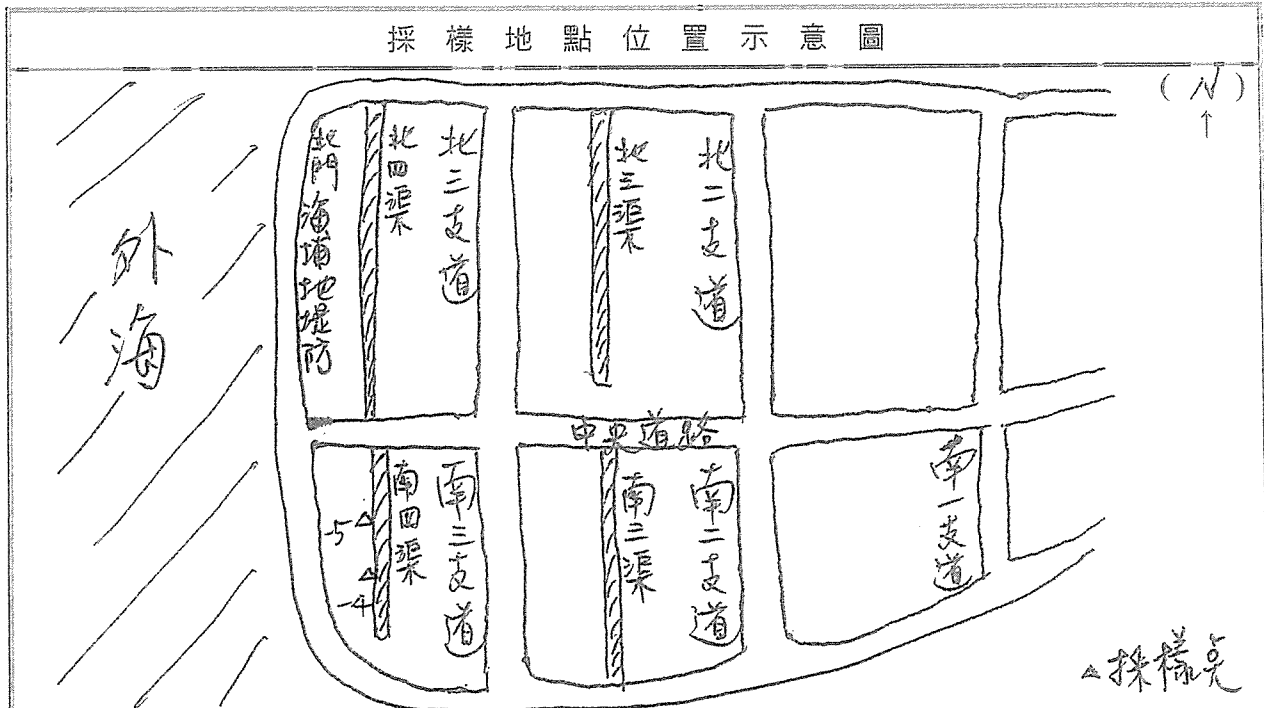 採樣地點位置示意圖
(N)
↑
外海
北門海埔地堤防
北四渠
北三支道
北三渠
北二支道
中央道路
南四渠
南三支道
南三渠
南二支道
南一支道
-5△
△
-4
△採樣點